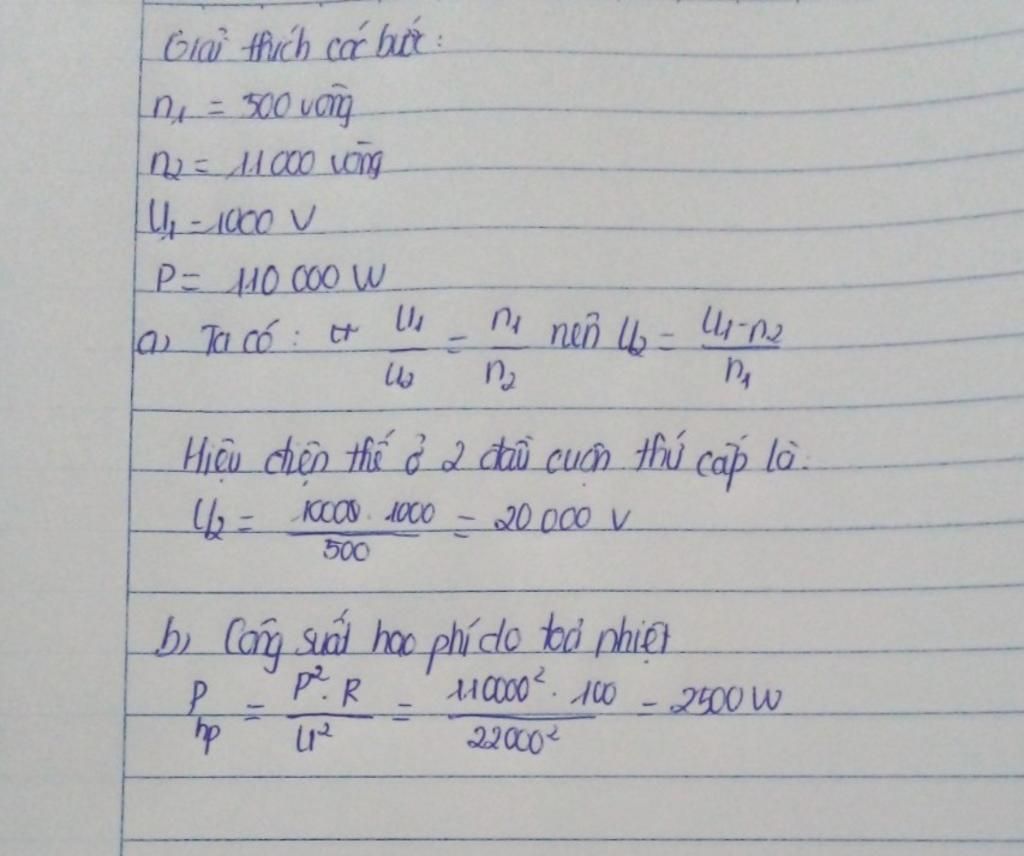 Giải thích các bước:
n₁ = 500 vòng
n₂ = 11000 vòng
U₁ = 1000 V
P = 110 000 W
a) Ta có: + U₁/U₂ = n₁/n₂ nên U₂ = U₁.n₂/n₁
Hiệu điện thế ở 2 đầu cuộn thứ cấp là:
U₂ = 10000. 1000/500 = 20 000 V
b) Công suất hao phí do toả nhiệt
P hp = P². R/U² = 110000². 100/22000² = 2500 W